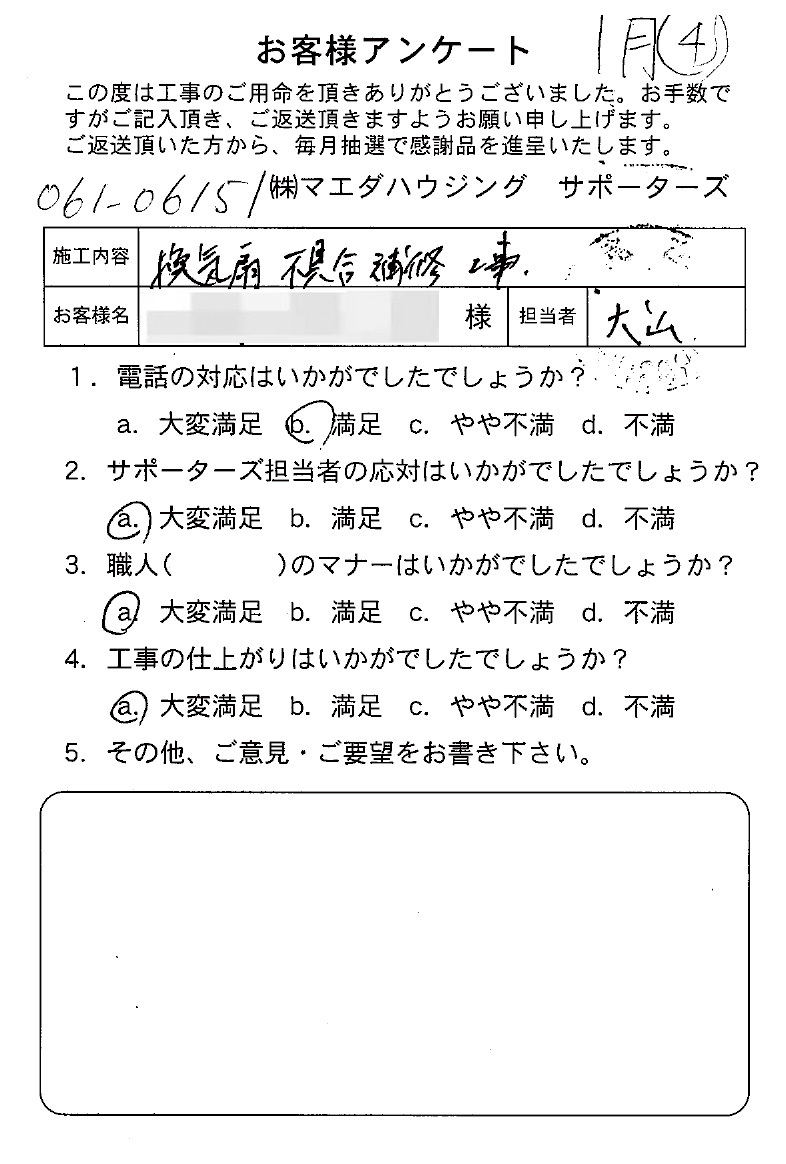 お客様アンケート 1月④
この度は工事のご用命を頂きありがとうございました。お手数で
すがご記入頂き、ご返送頂きますようお願い申し上げます。
ご返送頂いた方から、毎月抽選で感謝品を進呈いたします。
061-0615/㈱マエダハウジング サポーターズ
施工内容 換気扇 不具合補修工事.
お客様名 様 担当者 大山
1. 電話の対応はいかがでしたでしょうか?
a. 大変満足 b. 満足 c. やや不満 d. 不満
2. サポーターズ担当者の応対はいかがでしたでしょうか?
a. 大変満足 b. 満足 c. やや不満 d. 不満
3. 職人( )のマナーはいかがでしたでしょうか?
a. 大変満足 b. 満足 c. やや不満 d. 不満
4. 工事の仕上がりはいかがでしたでしょうか?
a. 大変満足 b. 満足 c. やや不満 d. 不満
5. その他、ご意見・ご要望をお書き下さい。